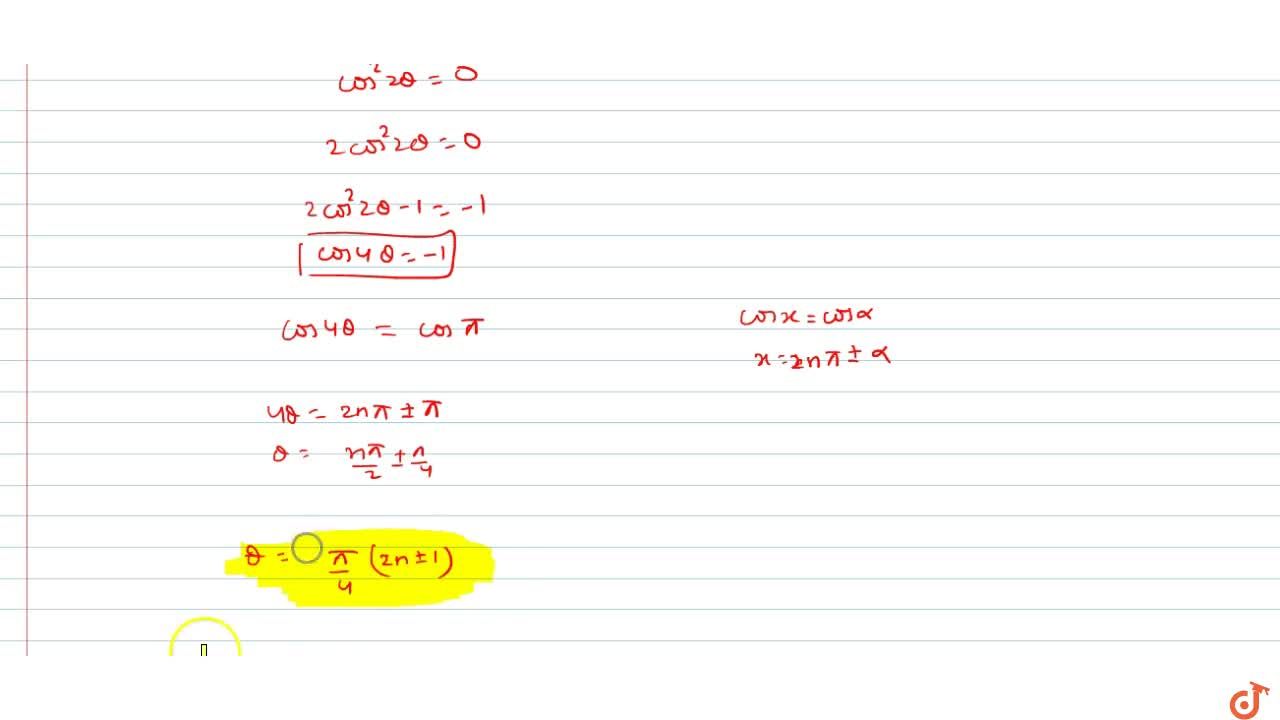 cos²2θ = 0
2cos²2θ = 0
2cos²2θ - 1 = -1
cos4θ = -1
cos4θ = cosπ
cosx = cosα
x = 2nπ ± α
4θ = 2nπ ± π
θ = nπ/2 ± π/4
θ = π/4 (2n ± 1)